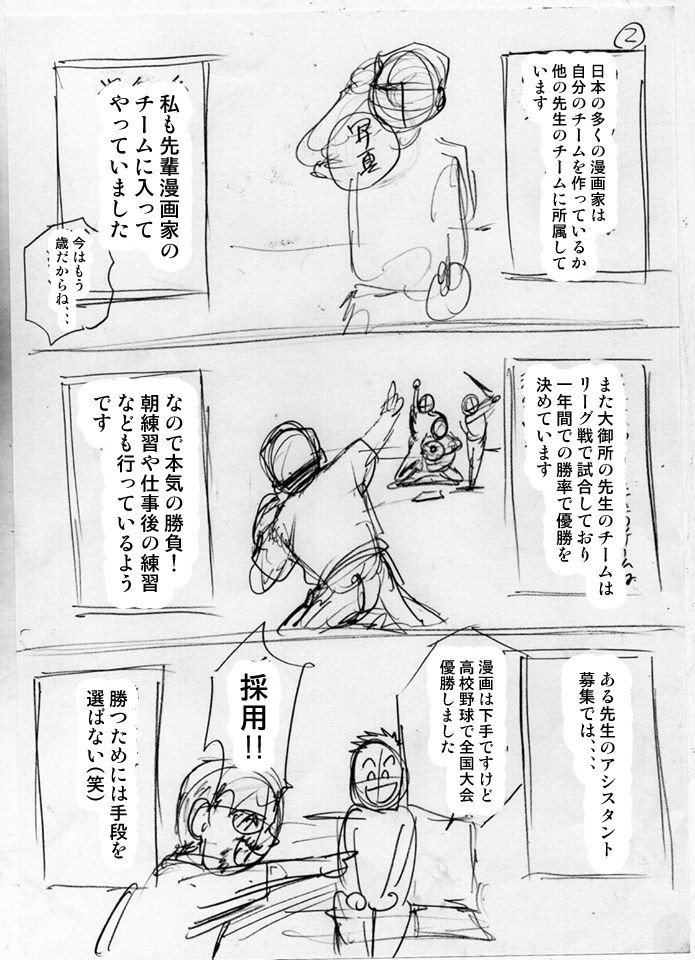 2
日本の多くの漫画家は
自分のチームを作っているか
他の先生のチームに所属して
います
私も先輩漫画家の
チームに入って
やっていました
今はもう
歳だからね、、、
また大御所の先生のチームは
リーグ戦で試合しており
一年間での勝率で優勝を
決めています
なので本気の勝負！
朝練習や仕事後の練習
なども行っているよう
です
ある先生のアシスタント
募集では、、、、
漫画は下手ですけど
高校野球で全国大会
優勝しました
採用!!
勝つためには手段を
選ばない(笑)